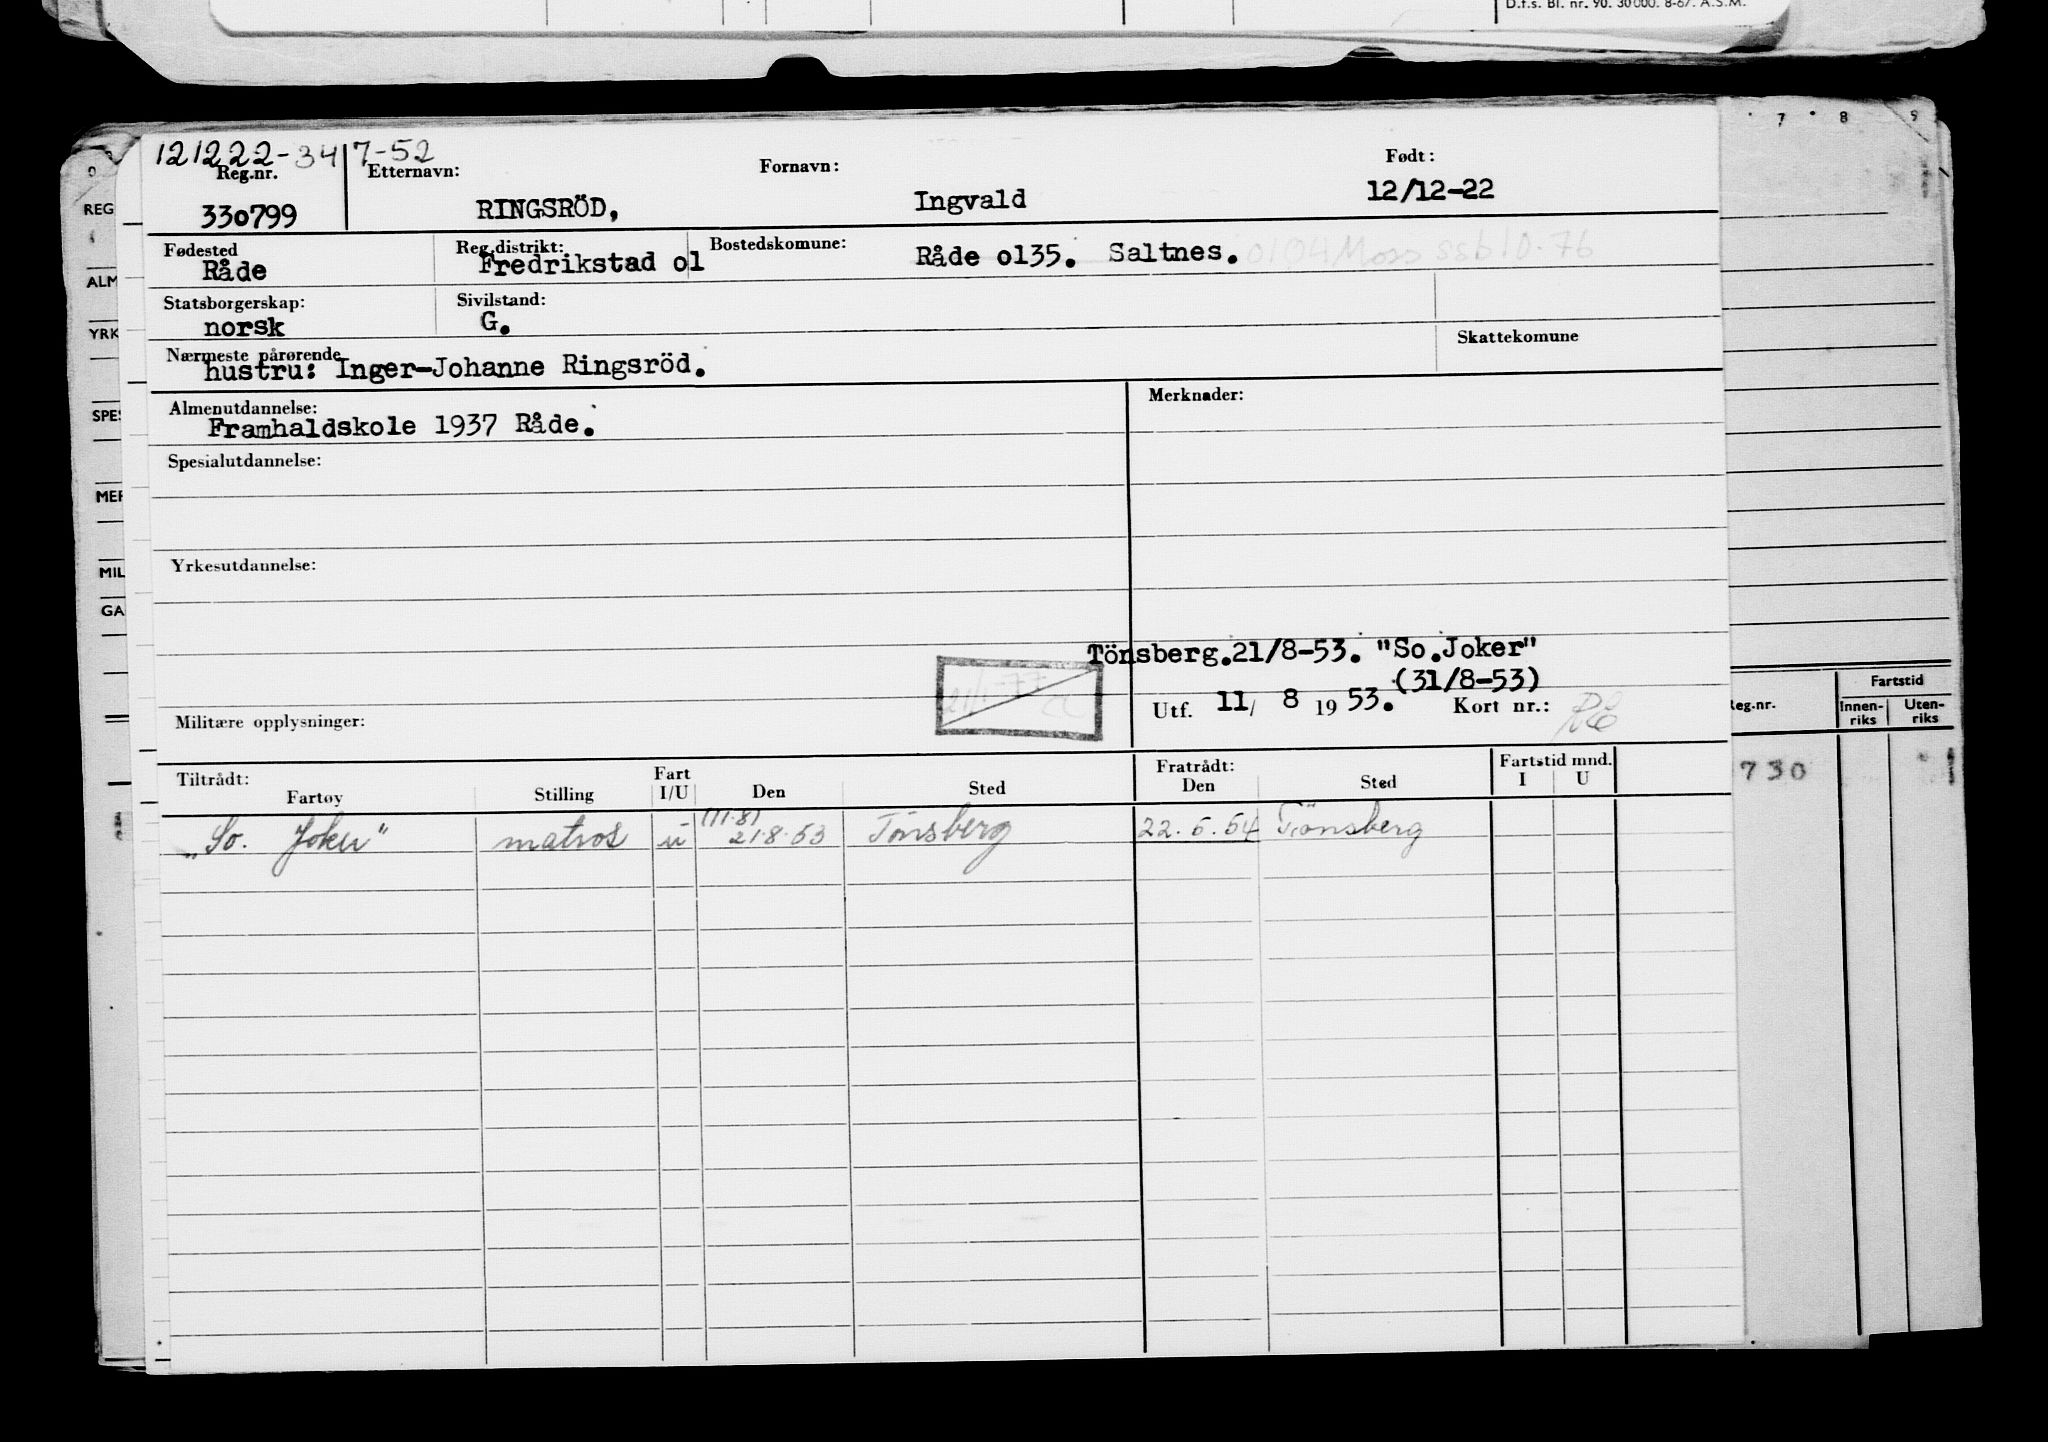 D.f.s. Bl. nr. 90. 30000. 8-67. A.S.M.
7 8 9
121222-34 7-52
Reg.nr. Etternavn: Fornavn: Født:
330799 RINGSRÖD, Ingvald 12/12-22
REG
Fødested Reg.distrikt: Bostedskomune:
Råde Fredrikstad o1 Råde o135. Saltnes. 0104 Moss ssb 10-76
ALM
Statsborgerskap: Sivilstand:
norsk G.
YRK
Nærmeste pårørende Skattekomune
hustru: Inger-Johanne Ringsröd.
Almenutdannelse: Merknader:
SPES
Framhaldskole 1937 Råde.
Spesialutdannelse:
MER
Yrkesutdannelse:
MIL
GA
Tönsberg.21/8-53. "So.Joker"
(31/8-53)
Utf. 11/ 8 19 53. Kort nr.:
Militære opplysninger:
Reg.nr. Fartstid
Innen-riks Uten-riks
730
Tiltrådt: Fart Fratrådt: Fartstid mnd.
Fartøy Stilling I/U Den Sted Den Sted I U
(11.8)
"So. Joker" matros u 21.8.53 Tönsberg 22.5.54 Tönsberg